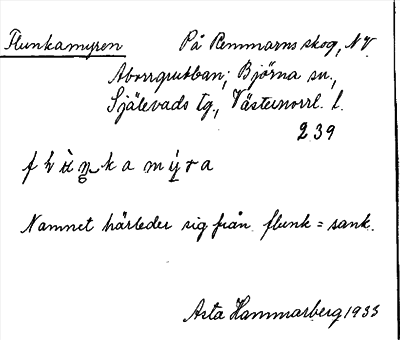 Flunkamyren På Remmarns skog, NV
Aborrgrubban; Björna sn.,
Själevads tg., Västernorrl. l.
239
Namnet härleder sig från flunk = sank.
Asta Hammarberg 1933